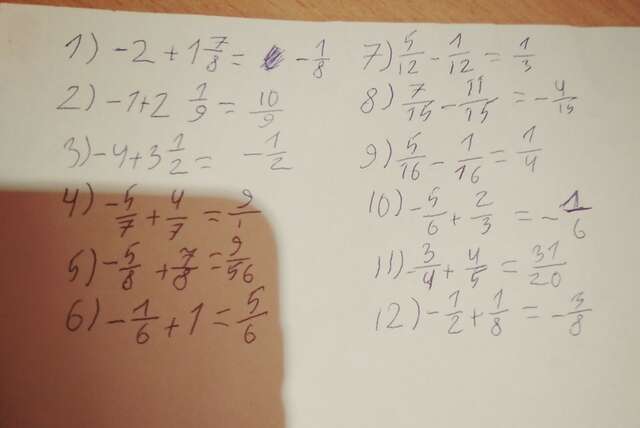 1) -2 + 1 7/8 = - 1/8
2) -1 + 2 1/9 = 10/9
3) -4 + 3 1/2 = - 1/2
4) - 5/7 + 4/7 = 9/1
5) - 5/8 + 7/8 = 9/56
6) - 1/6 + 1 = 5/6
7) 5/12 - 1/12 = 1/3
8) 7/15 - 11/15 = - 4/15
9) 5/16 - 1/16 = 1/4
10) - 5/6 + 2/3 = - 1/6
11) 3/4 + 4/5 = 31/20
12) - 1/2 + 1/8 = - 3/8